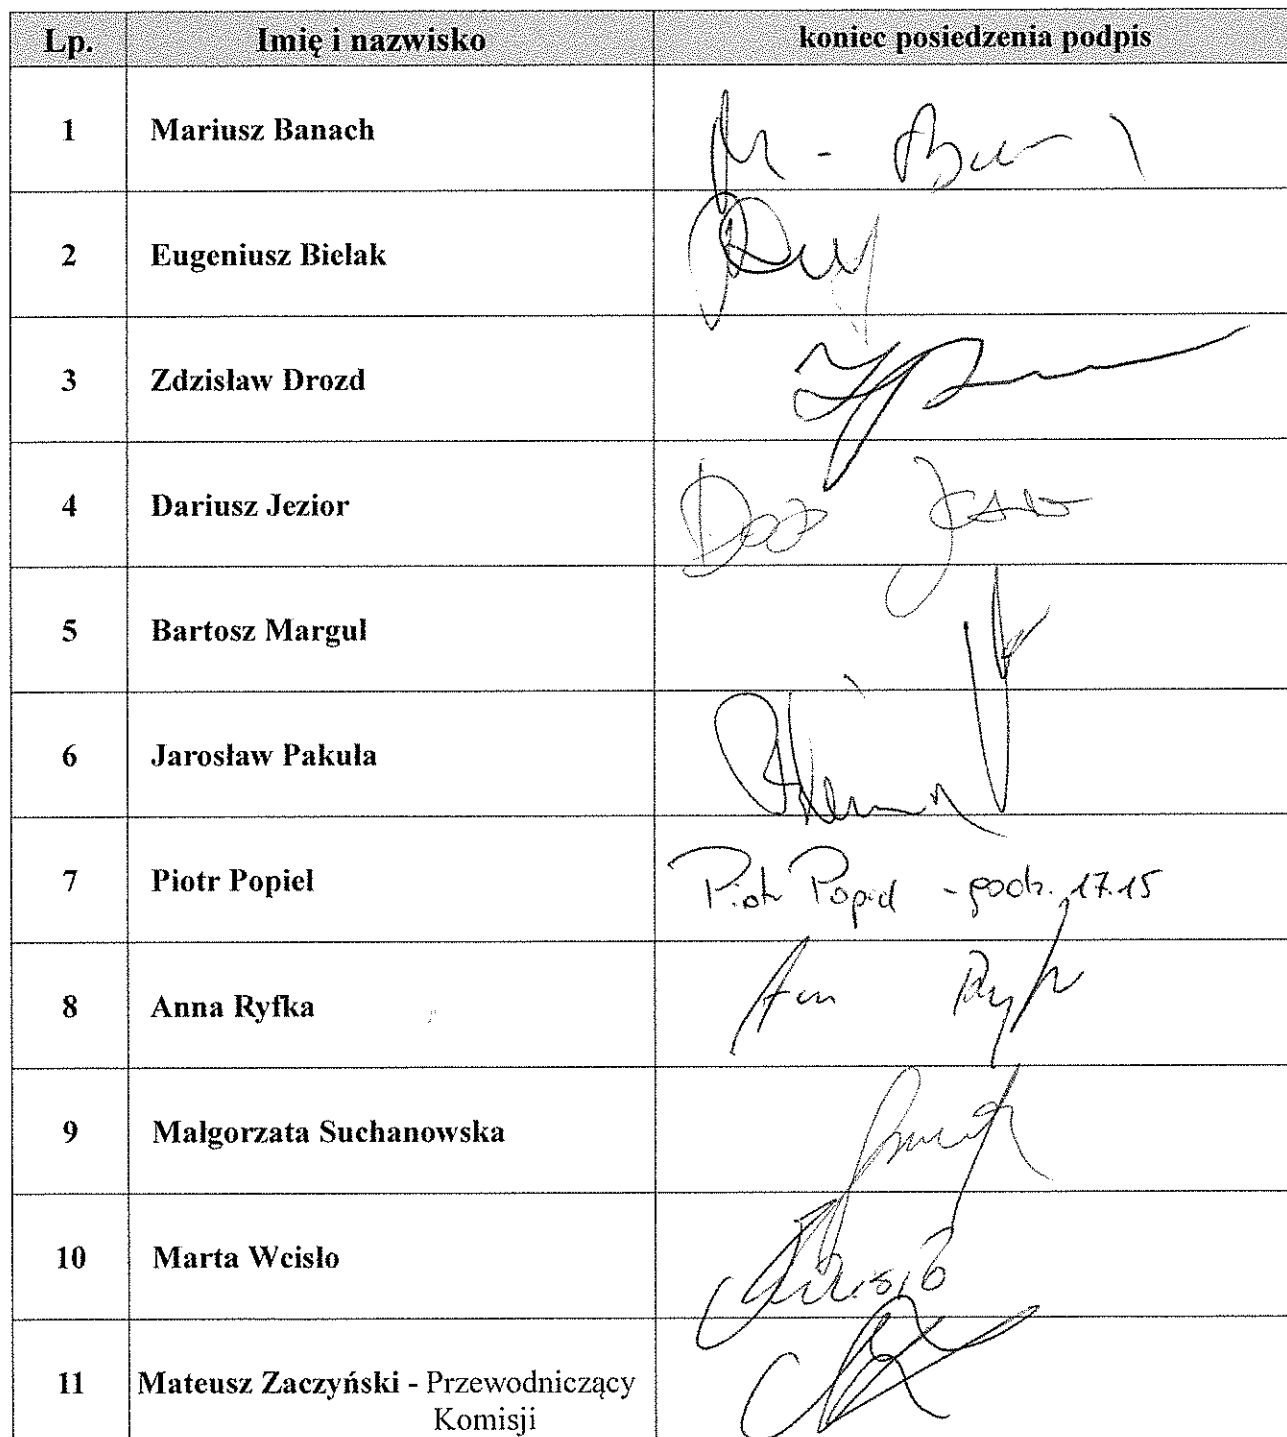 Lp. Imię i nazwisko koniec posiedzenia podpis
1 Mariusz Banach
2 Eugeniusz Bielak
3 Zdzisław Drozd
4 Dariusz Jezior
5 Bartosz Margul
6 Jarosław Pakuła
7 Piotr Popiel Piotr Popiel - godz. 17.15
8 Anna Ryfka
9 Małgorzata Suchanowska
10 Marta Wcisło
11 Mateusz Zaczyński - Przewodniczący
Komisji